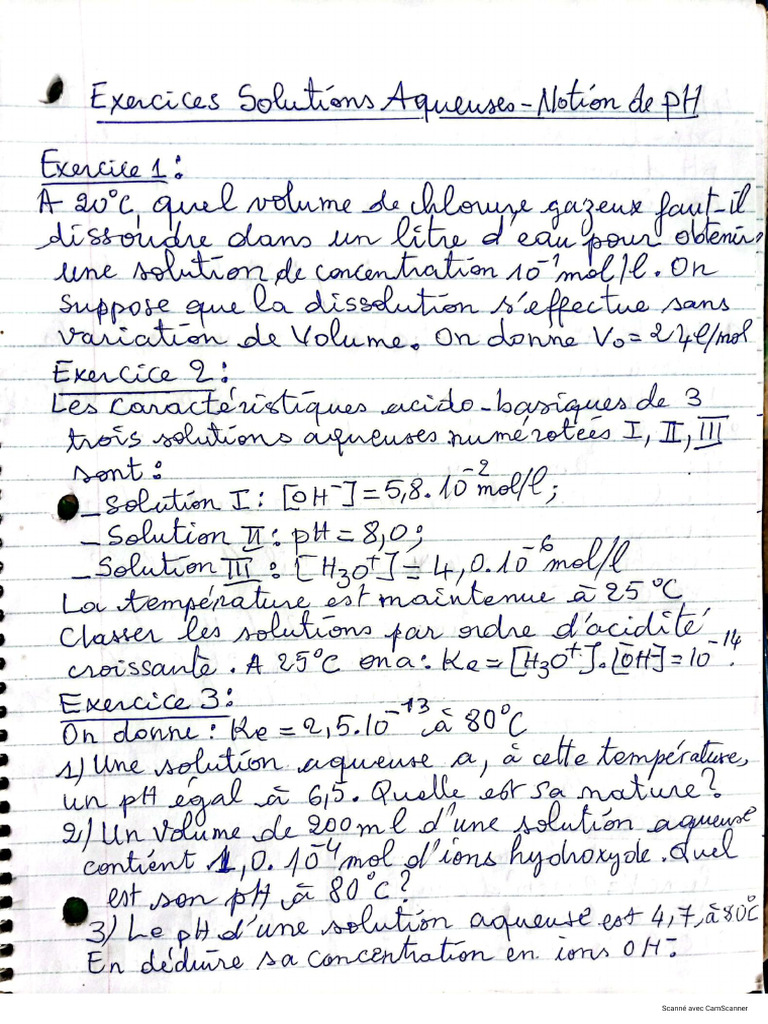 Exercices Solutions Aqueuses - Notion de pH
Exercice 1 :
A 20°C, quel volume de chlorure gazeux faut-il
dissoudre dans un litre d'eau pour obtenir,
une solution de concentration 10⁻¹mol/l. On
suppose que la dissolution s'effectue sans
variation de Volume. On donne V₀ = 24l/mol
Exercice 2 :
Les caractéristiques acido-basiques de 3
trois solutions aqueuses numérotées I, II, III
sont :
_ Solution I : [OH⁻] = 5,8.10⁻² mol/l ;
_ Solution II : pH = 8,0 ;
_ Solution III : [H₃O⁺] = 4,0.10⁻⁶ mol/l
La température est maintenue à 25°C
Classer les solutions par ordre d'acidité
croissante. A 25°C on a : Ke = [H₃O⁺].[OH⁻] = 10⁻¹⁴.
Exercice 3 :
On donne : Ke = 2,5.10⁻¹³ à 80°C
1) Une solution aqueuse a, à cette température,
un pH égal à 6,5. Quelle est sa nature ?
2) Un volume de 200 ml d'une solution aqueuse
contient 1,0.10⁻⁴ mol d'ions hydroxyde. Quel
est son pH à 80°C ?
3) Le pH d'une solution aqueuse est 4,7, à 80°C
En déduire sa concentration en ions OH⁻.
Scanné avec CamScanner